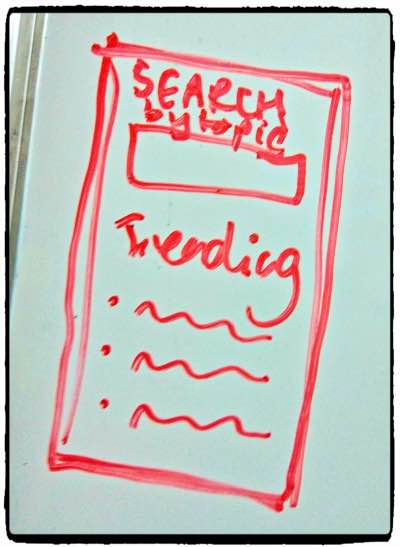 SEARCH
by topic
Trending